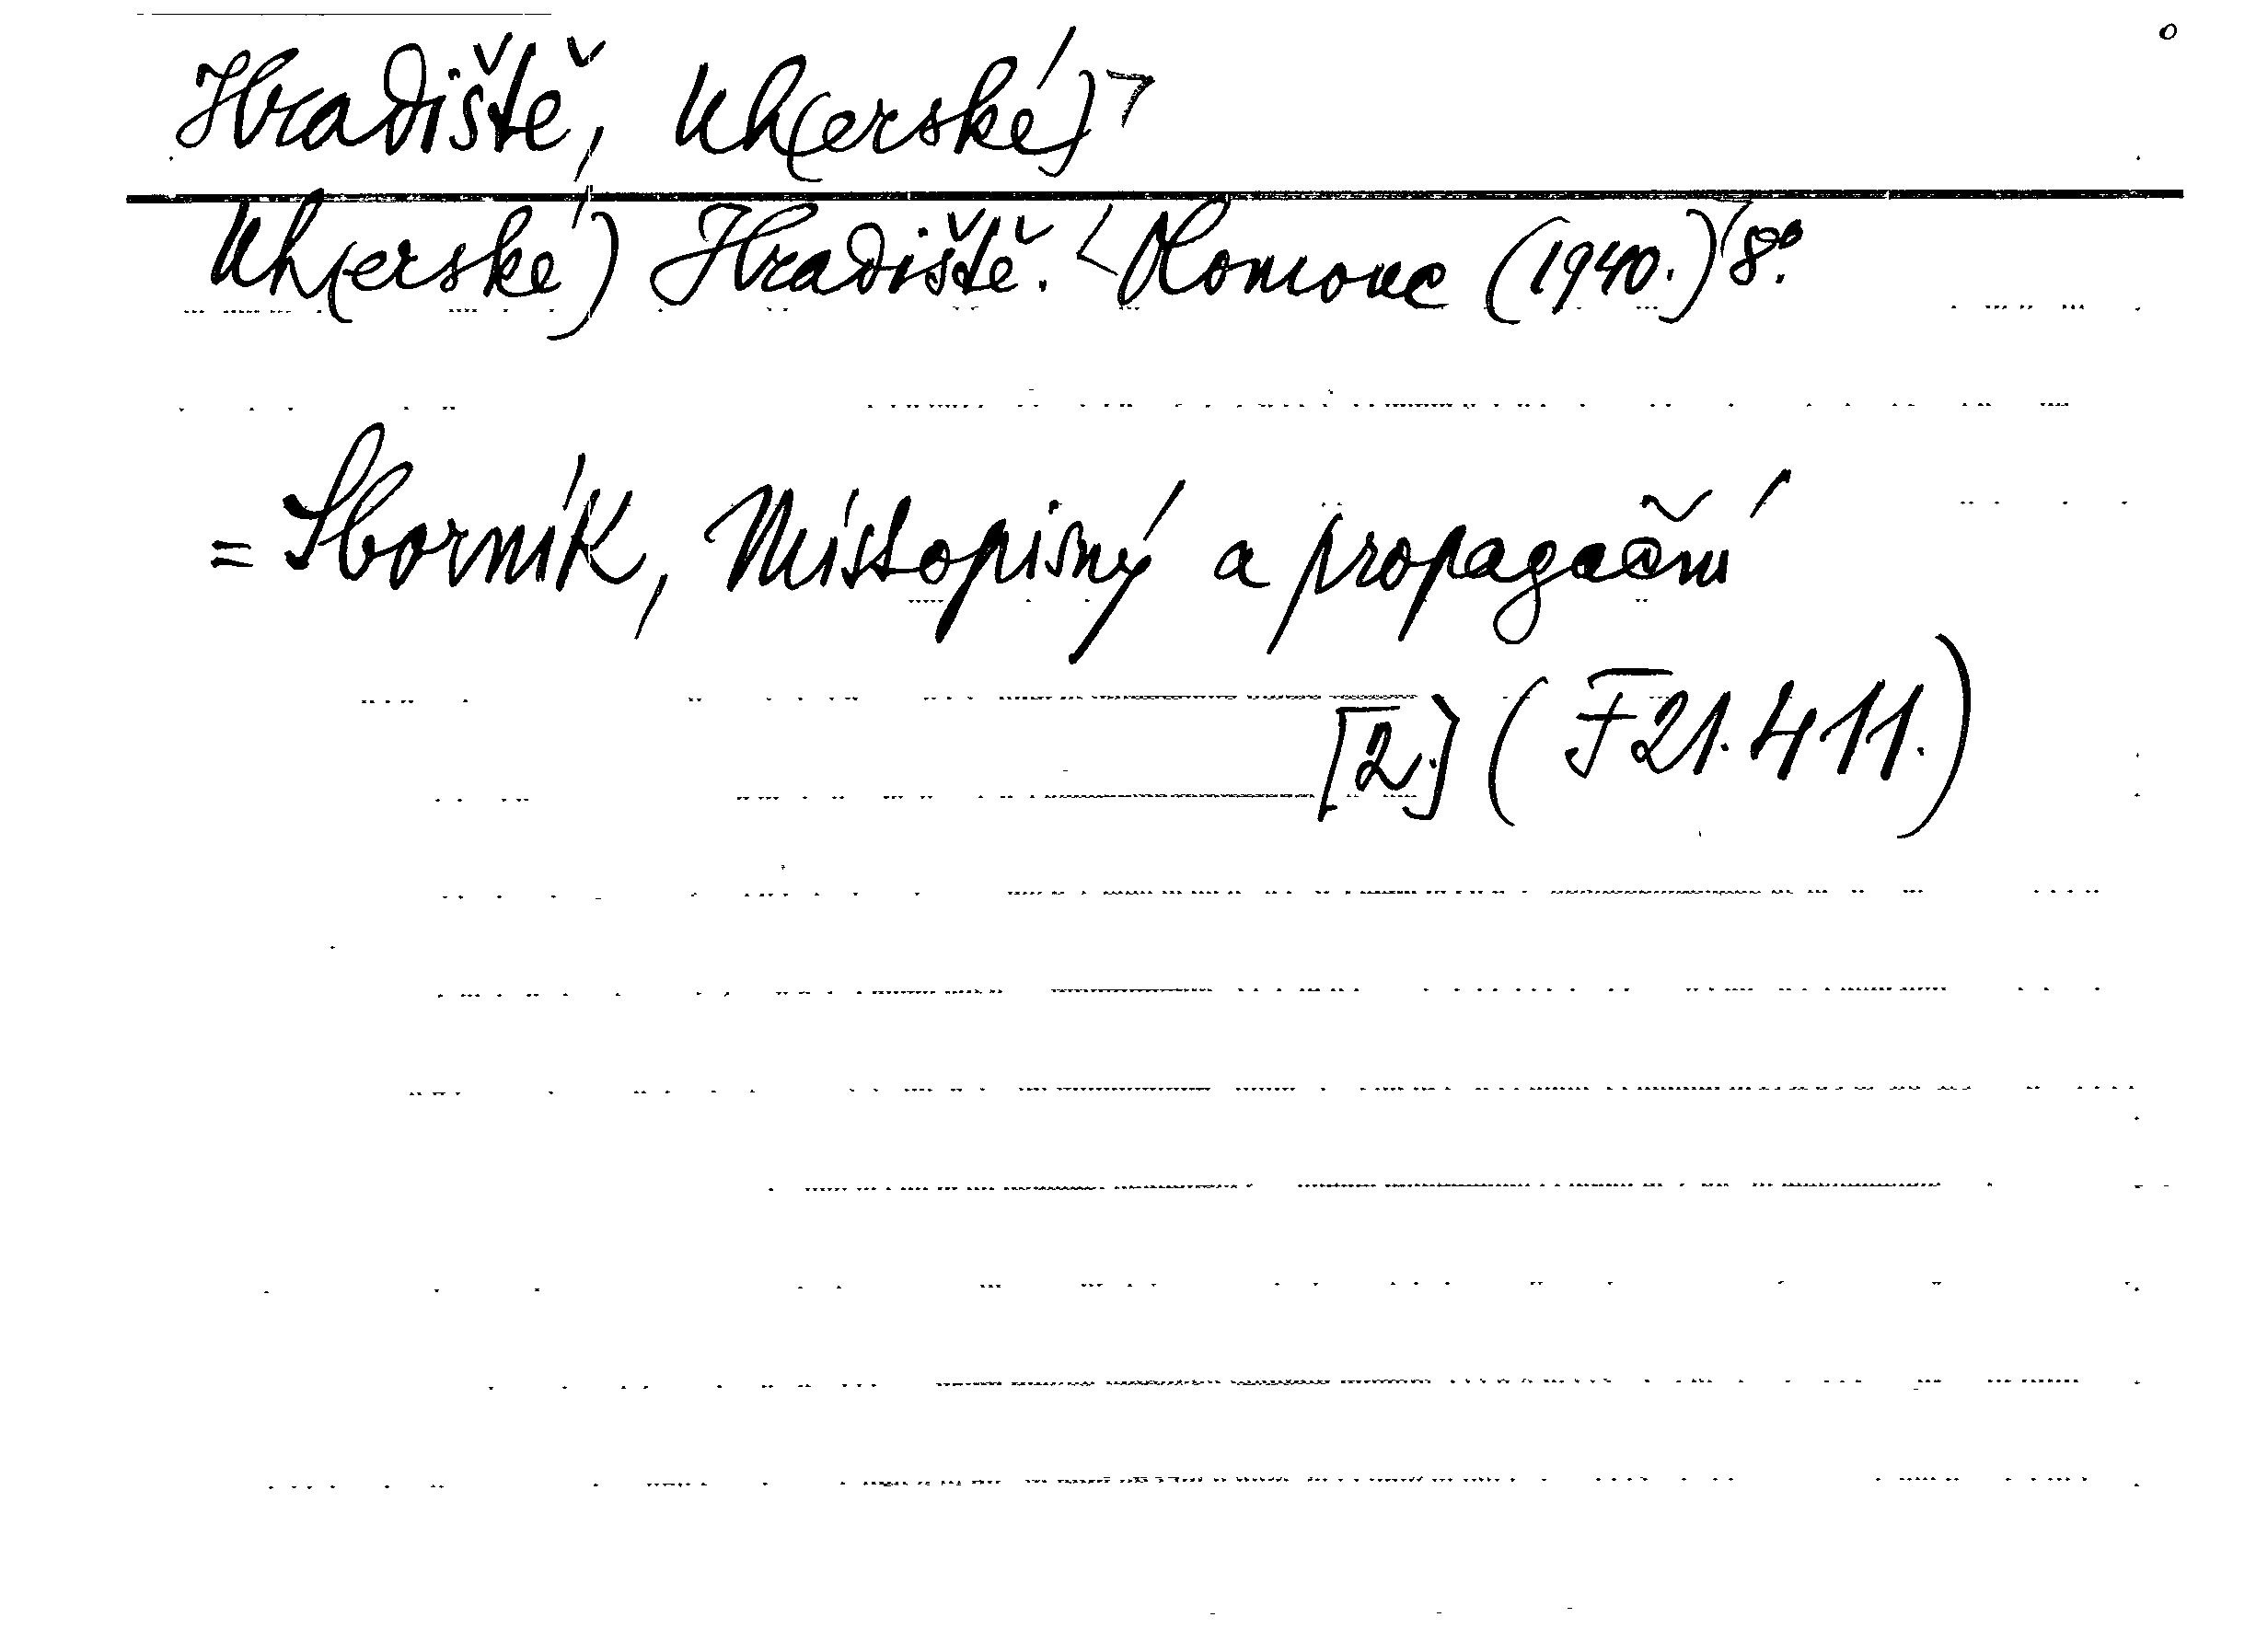 Hradiště, Uh(erské)
Uh(erské) Hradiště. Olomouc (1940.) 8°.
= Sborník, Místopisný a propagační
[2.] (F21.411.)